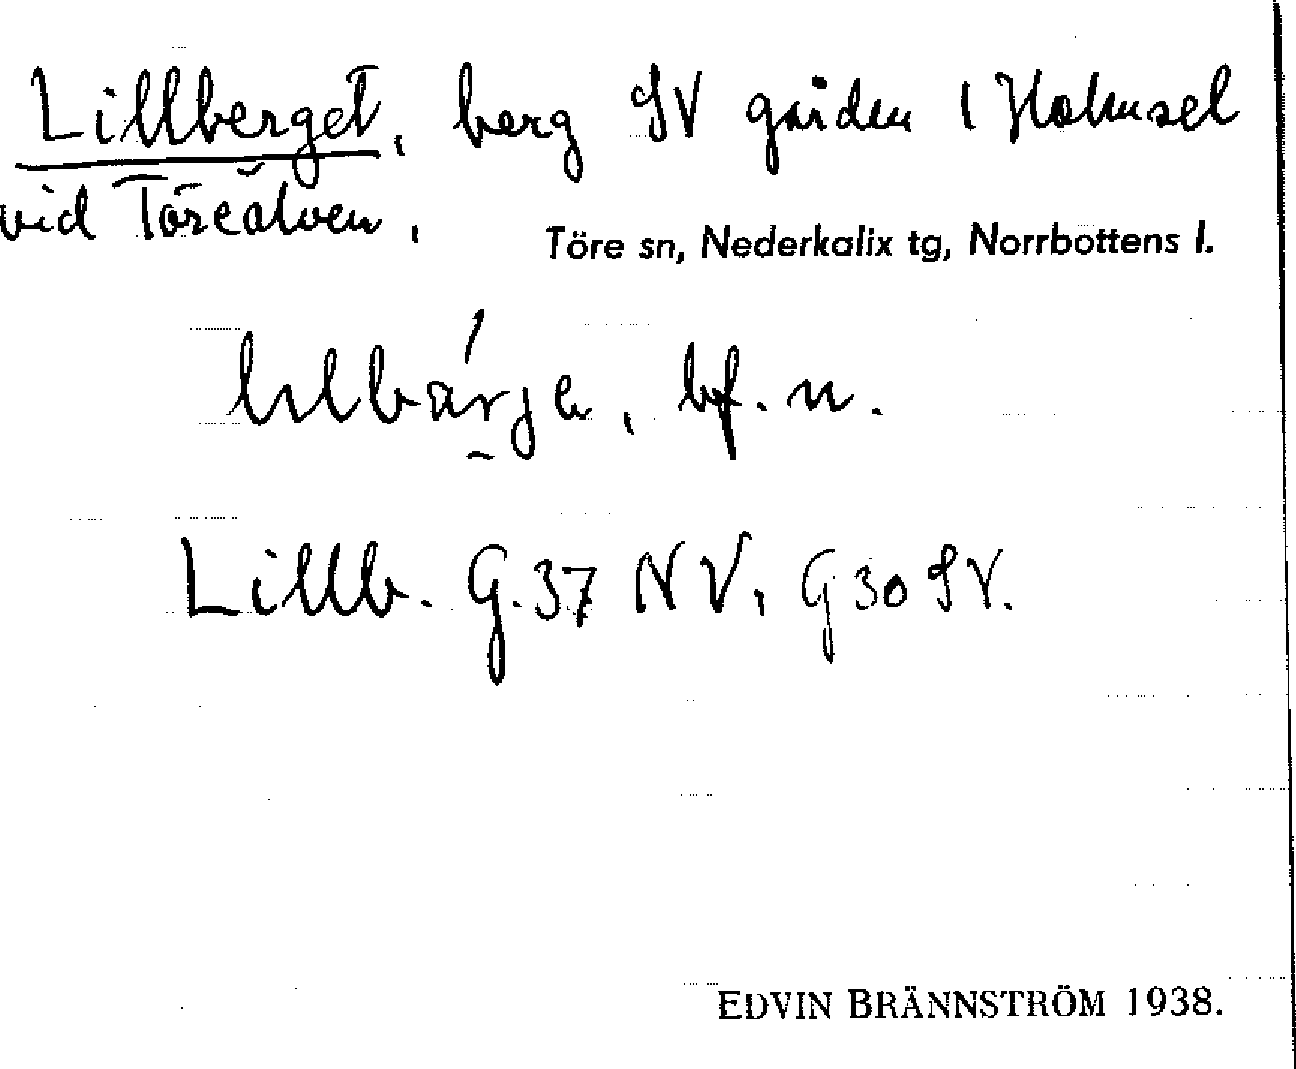 Lillberget, berg SV gården 1 Holmsel
vid Töreälven,
Töre sn, Nederkalix tg, Norrbottens l.
bf. n.
Lillb. G.37 NV, G30 SV.
EDVIN BRÄNNSTRÖM 1938.